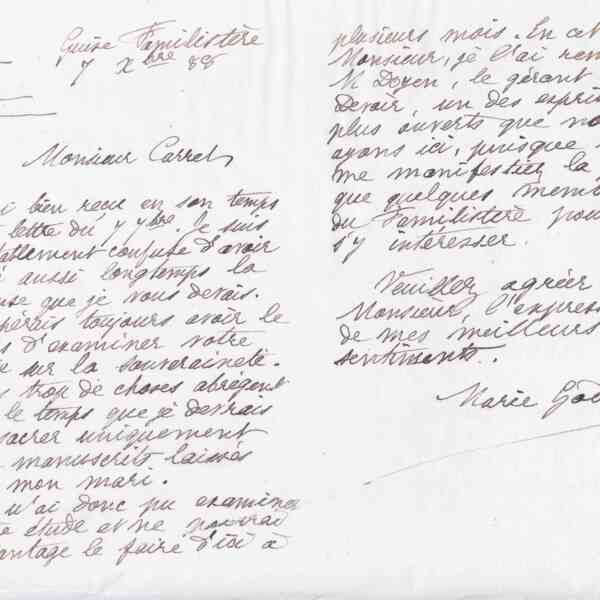 Guise Familistère
7 Xbre 88
Monsieur Carret,
i bien reçu en son temps
lettre du 7 7bre. Je suis
confuse d'avoir
aussi longtemps la
que je vous devais.
pérais toujours avoir le
d'examiner votre
sur la souveraineté.
trop de choses abrègent
le temps que je devrais
sacrer uniquement
manuscrits laissés
mon mari.
n'ai donc pu examiner
étude et ne pourrai
antage le faire d'ici à
plusieurs mois. En cet
Monsieur, je l'ai rem
M Doyen, le gérant
Devoir, un des esprit
plus ouverts que no
ayons ici, puisque
me manifestez la
que quelques mem
du Familistère pou
s'y intéresser.
Veuillez agréer
Monsieur, l'express
de mes meilleurs
sentiments.
Marie God